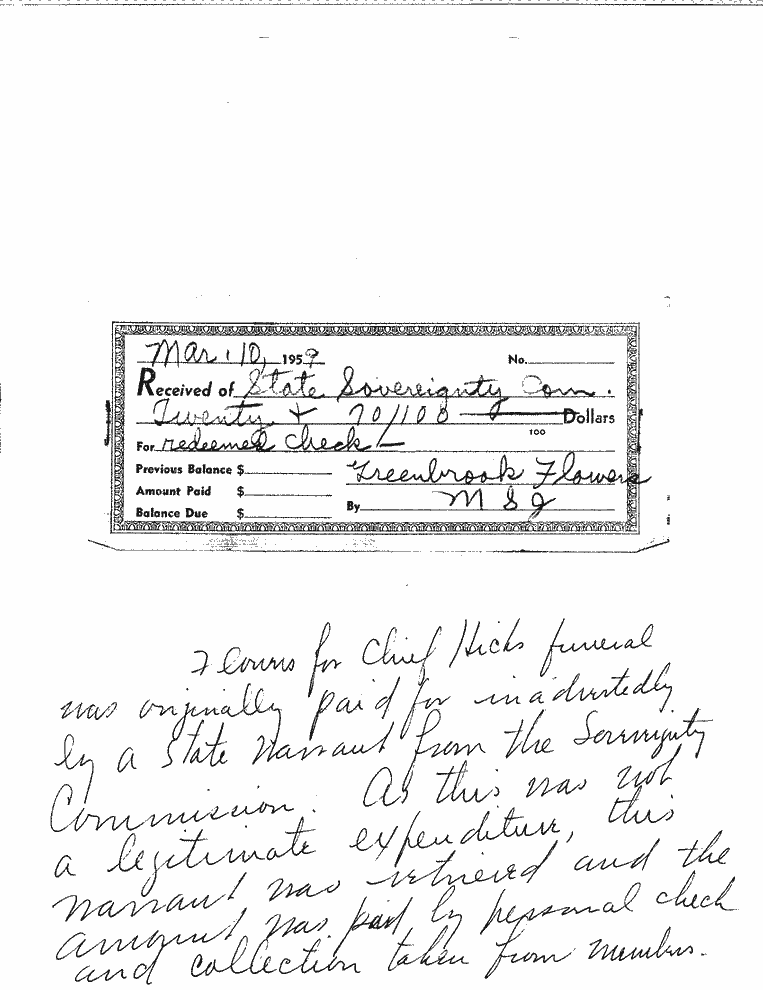 Mar. 10, 1959 No.
Received of State Sovereignty Com.
Twenty + 70/100 Dollars
100
For redeemed check
Previous Balance $ Greenbrook Flowers
Amount Paid $
Balance Due $ By M S J
Flowers for Chief Hicks funeral
was originally paid for inadvertedly
by a State Warrant from the Sovereignty
Commission. As this was not
a legitimate expenditure, this
warrant was retrieved and the
amount was paid by personal check
and collection taken from members.